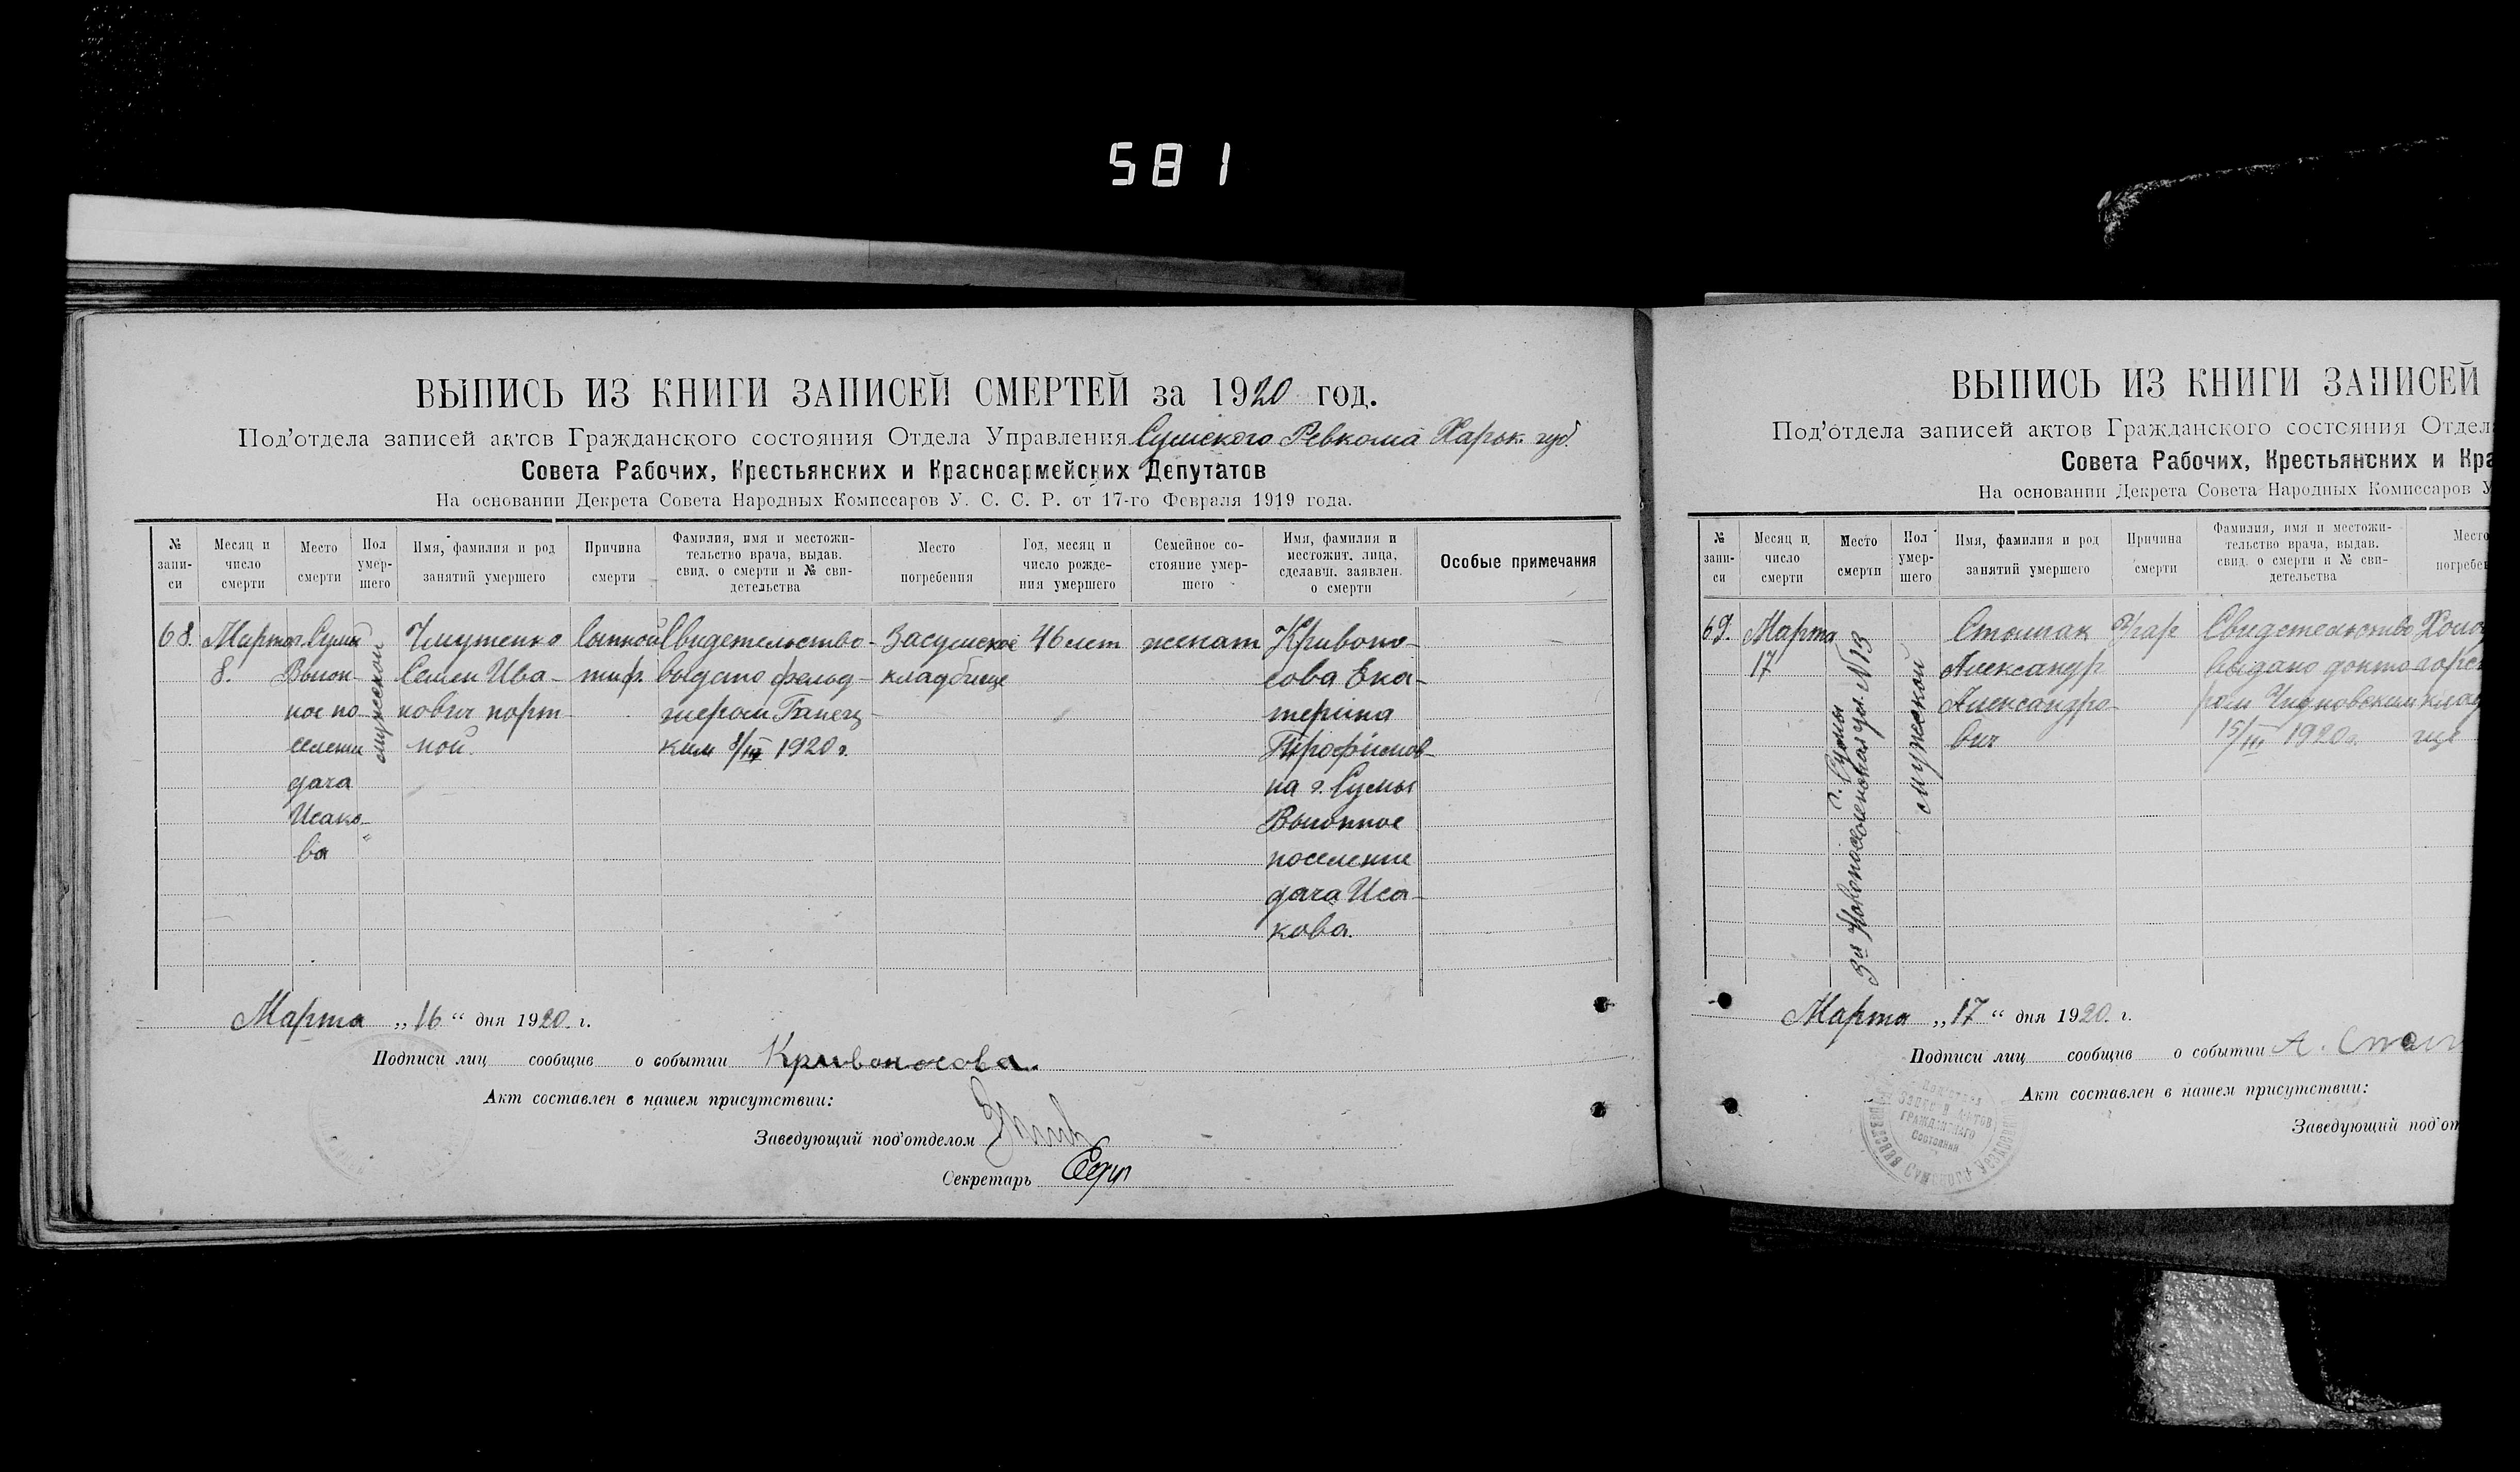 581
ВЫПИСЬ ИЗ КНИГИ ЗАПИСЕЙ СМЕРТЕЙ за 1920 год.
Под'отдела записей актов Гражданского состояния Отдела Управления Сумского Ревкома Харьк. губ.
Совета Рабочих, Крестьянских и Красноармейских Депутатов
На основании Декрета Совета Народных Комиссаров У. С. С. Р. от 17-го Февраля 1919 года.
№ запи-
си
Месяц и
число
смерти
Место
смерти
Пол
умер-
шего
Имя, фамилия и род
занятий умершего
Причина
смерти
Фамилия, имя и местожи-
тельство врача, выдав.
свид. о смерти и № сви-
детельства
Место
погребения
Год, месяц и
число рожде-
ния умершего
Семейное со-
стояние умер-
шего
Имя, фамилия и
местожит. лица,
сделавш. заявлен.
о смерти
Особые примечания
68.
Марта
8.
г. Сумы
Выгон-
ное по
селение
дача
Исако-
ва
мужеской
Семен Ива-
нович порт-
ной.
сыпной
тиф.
Свидетельство
выдано фельд-
шером
ким 8/III 1920 г.
Засумское
кладбище
46 лет
женат
Кривоно-
сова Ека-
терина
Трофимов-
на г. Сумы
Выгонное
поселение
дача Иса-
кова.
Марта „16“ дня 1920. г.
Подписи лиц сообщив о событии Кривоносова.
Акт составлен в нашем присутствии:
Заведующий под'отделом
Секретарь
ВЫПИСЬ ИЗ КНИГИ ЗАПИСЕЙ
Под'отдела записей актов Гражданского состояния Отдела
Совета Рабочих, Крестьянских и Кра
На основании Декрета Совета Народных Комиссаров У
№
запи-
си
Месяц и
число
смерти
Место
смерти
Пол
умер-
шего
Имя, фамилия и род
занятий умершего
Причина
смерти
Фамилия, имя и местожи-
тельство врача, выдав.
свид. о смерти и № сви-
детельства
Место
погребе
69.
Марта
17
г. Сумы
3я Новопоселенская ул. №13
мужеской
Александр
Александро-
вич
Угар
Свидетельство
выдано докто
ром Чудновским
15/III 1920 г.
Марта „17“ дня 1920. г.
Подписи лиц сообщив о событии А.
Акт составлен в нашем присутствии:
Заведующий под'от